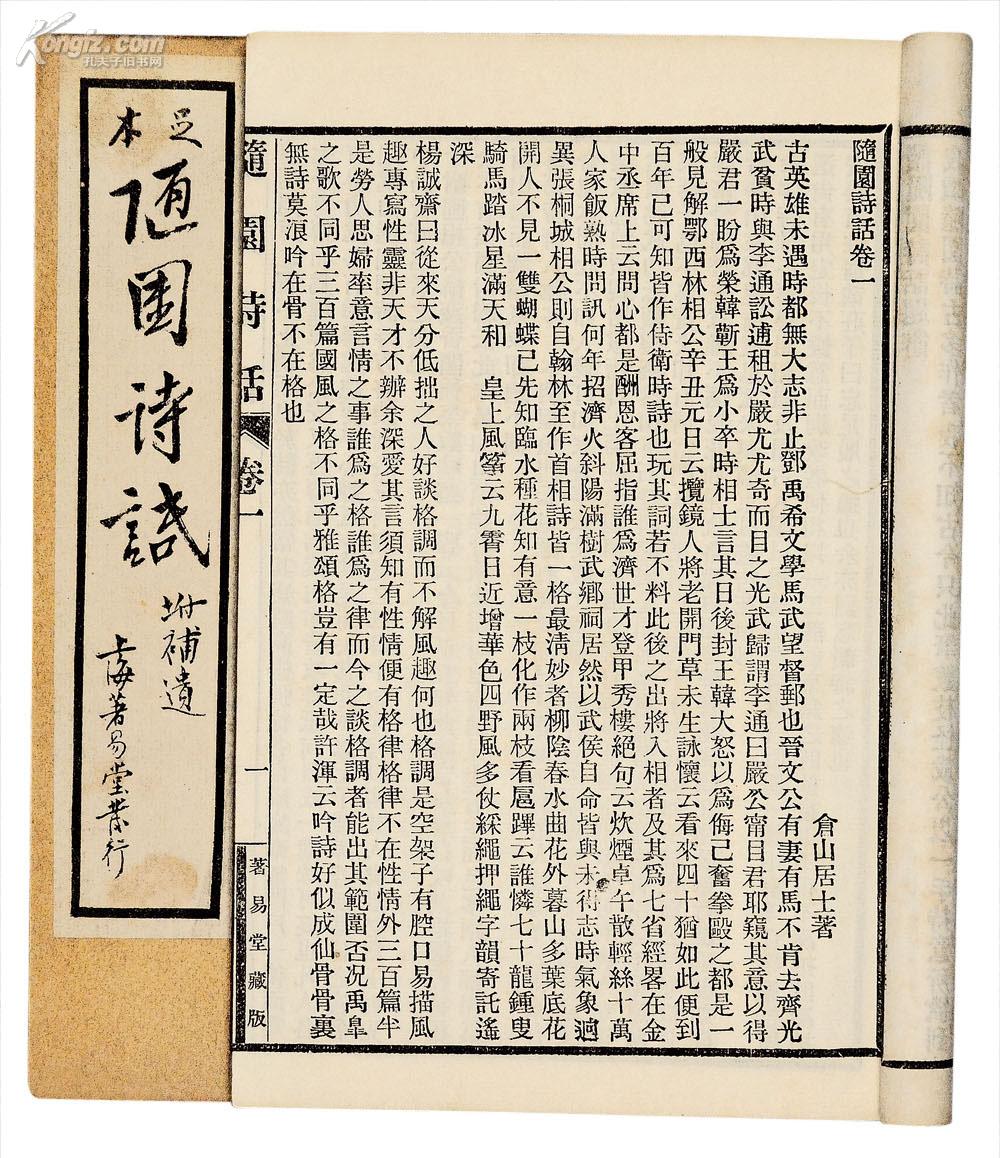 Kongfz.com
孔夫子旧书网
足本
随園诗話
坿補遺
上海著易堂發行
隨園詩話卷一
倉山居士著
古英雄未遇時都無大志非止鄧禹希文學馬武望督郵也晉文公有妻有馬不肯去齊光
武貧時與李通訟逋租於嚴尤尤奇而目之光武歸謂李通曰嚴公甯目君耶窺其意以得
嚴君一盼爲榮韓蘄王爲小卒時相士言其日後封王韓大怒以爲侮己奮拳毆之都是一
般見解鄂西林相公辛丑元日云攬鏡人將老開門草未生詠懷云看來四十猶如此便到
百年已可知皆作侍衛時詩也玩其詞若不料此後之出將入相者及其爲七省經畧在金
中丞席上云問心都是酬恩客屈指誰爲濟世才登甲秀樓絕句云炊煙卓午散輕絲十萬
人家飯熟時問訊何年招濟火斜陽滿樹武鄉祠居然以武侯自命皆與未得志時氣象迥
異張桐城相公則自翰林至作首相詩皆一格最淸妙者柳陰春水曲花外暮山多葉底花
開人不見一雙蝴蝶已先知臨水種花知有意一枝化作兩枝看扈蹕云誰憐七十龍鍾叟
騎馬踏冰星滿天和　皇上風箏云九霄日近增華色四野風多仗綵繩押繩字韻寄託遙
深
楊誠齋曰從來天分低拙之人好談格調而不解風趣何也格調是空架子有腔口易描風
趣專寫性靈非天才不辦余深愛其言須知有性情便有格律格律不在性情外三百篇半
是勞人思婦率意言情之事誰爲之格誰爲之律而今之談格調者能出其範圍否況禹臯
之歌不同乎三百篇國風之格不同乎雅頌格豈有一定哉許渾云吟詩好似成仙骨骨裏
無詩莫浪吟在骨不在格也
隨園詩話
卷一
一
著易堂藏版